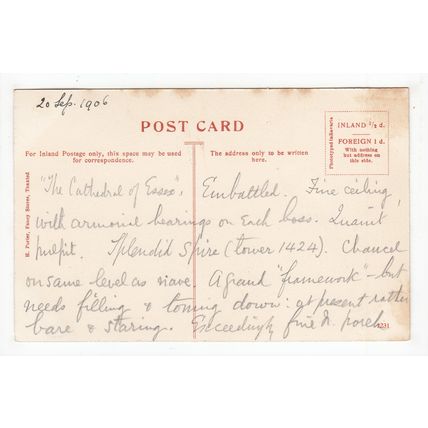 20 Sep. 1906
POST CARD
For Inland Postage only, this space may be used
for correspondence.
The address only to be written
here.
INLAND ½ d.
FOREIGN 1 d.
With nothing
but address on
this side.
"The Cathedral of Essex", Embattled. Fine ceiling,
with armorial bearings on each boss. Quaint
pulpit. Splendid Spire (tower 1424). Chancel
on same level as nave. A grand "framework" – but
needs filling & toning down: at present rather
bare & staring. Exceedingly fine N. porch
R. Porter, Fancy Stores, Thaxted